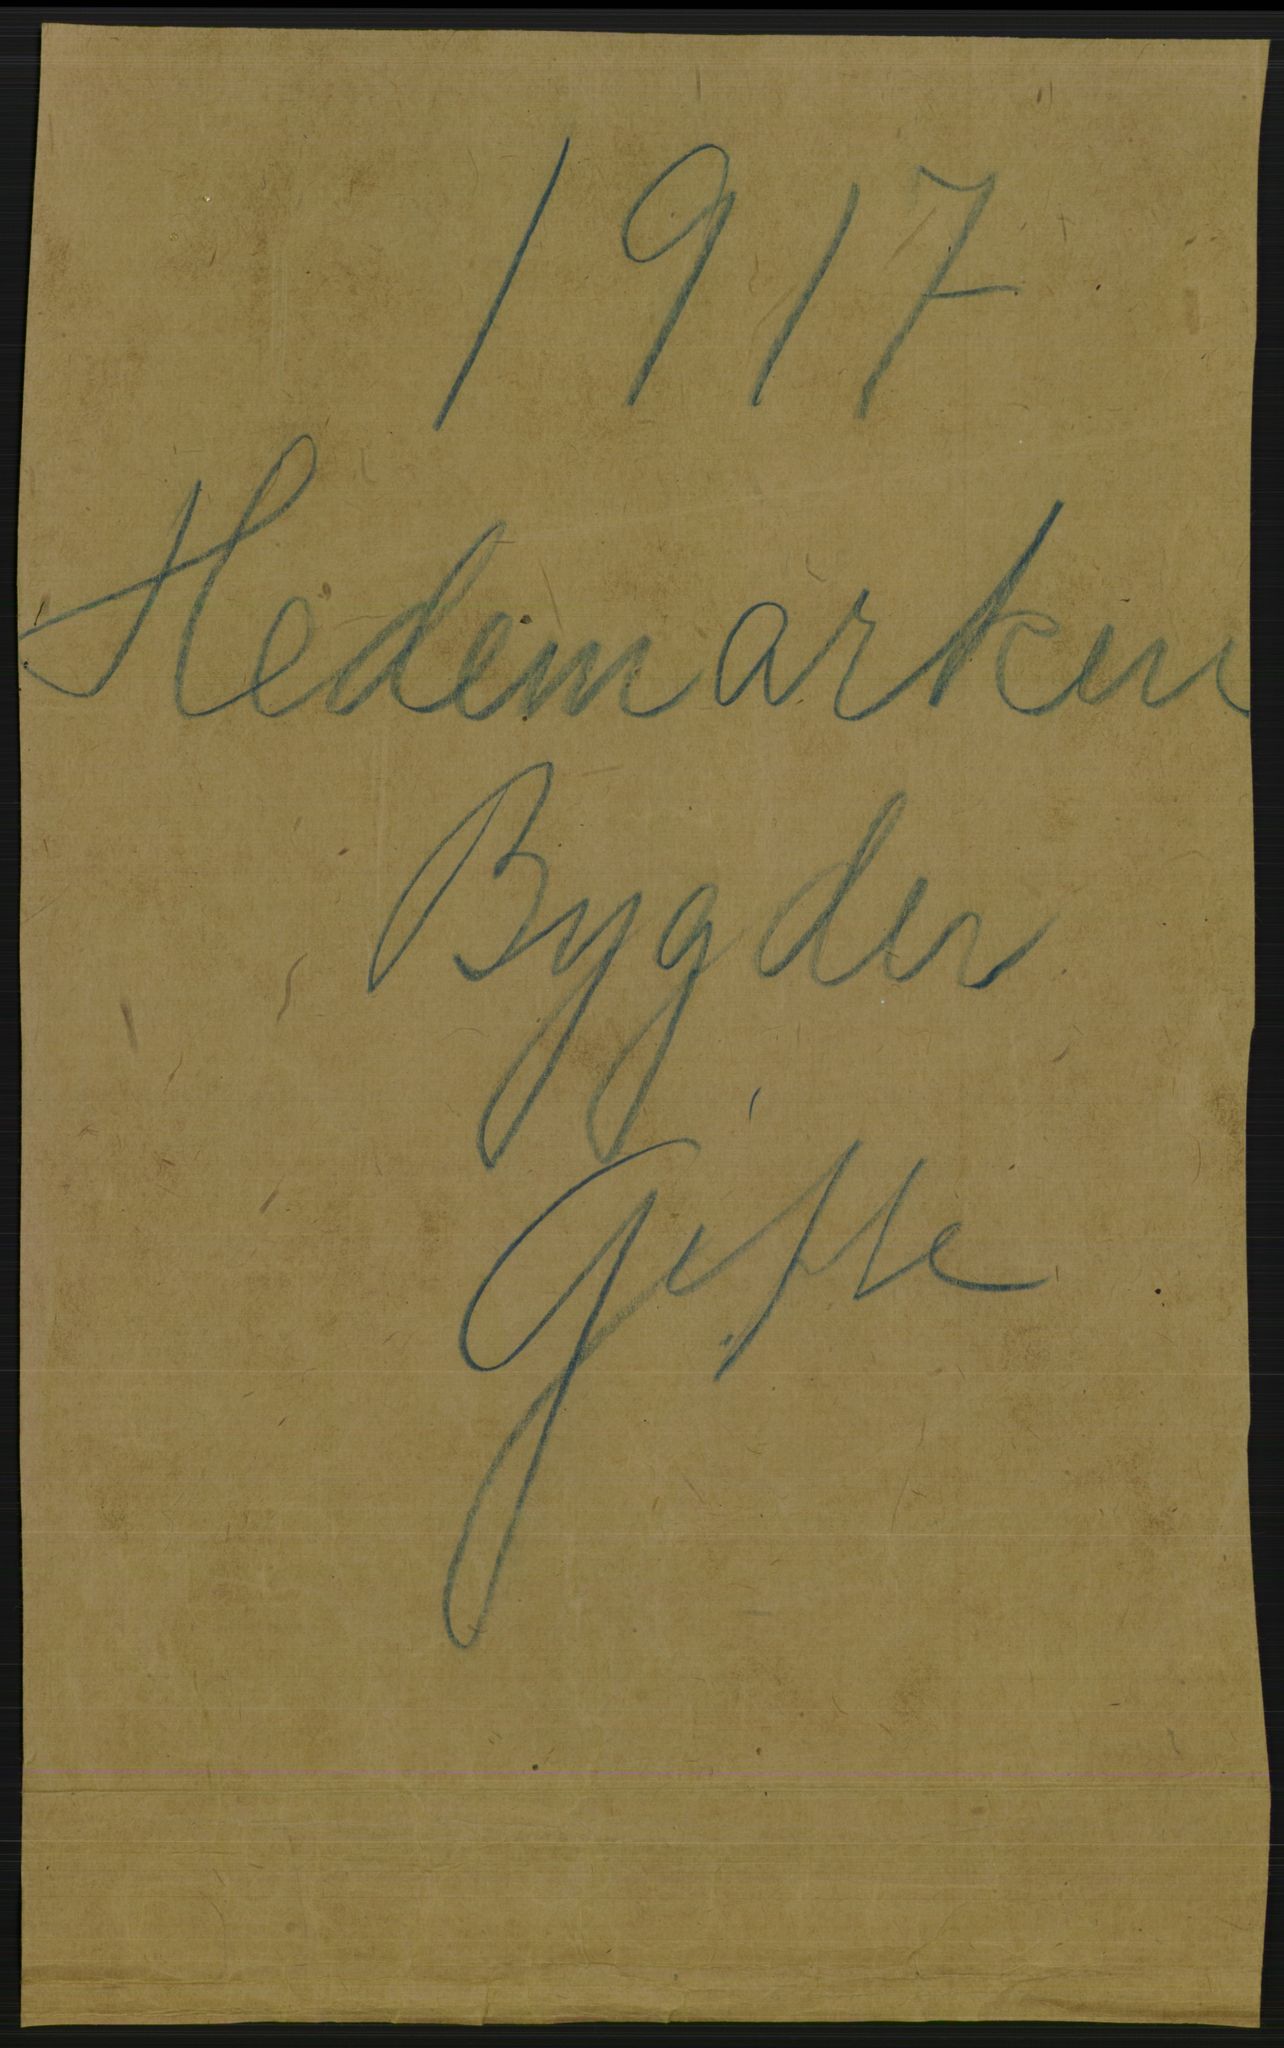 1917
Hedemarken
Bygder
Gifte